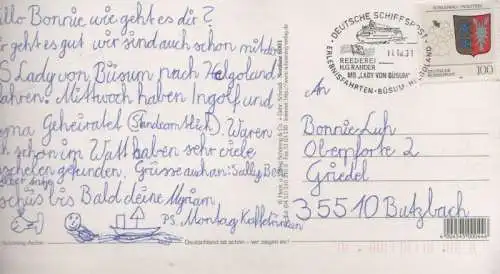 llo Bonnie wie geht es dir?
geht es gut wir sind auch schon mit der
S Lady von Büsum nach Helgoland
ahren. Mittwoch haben Ingolf und
Geheiratet (Standesamtlich). Waren
schon im Watt haben sehr viele
scheln gefunden. Grüsse auch an: Sally, Ben
schüs bis Bald deine Myriam
PS. Montag Kaffetrinken
DEUTSCHE SCHIFFSPOST
REEDEREI
H.G.RAHDER
MS "LADY VON BÜSUM"
ERLEBNISFAHRTEN · BÜSUM-HELGOLAND
DEUTSCHE BUNDESPOST
100
An
Bonnie Luh
Oberpforte 2
Griedel
35510 Butzbach
Deutschland ist schön – wir zeigen es!